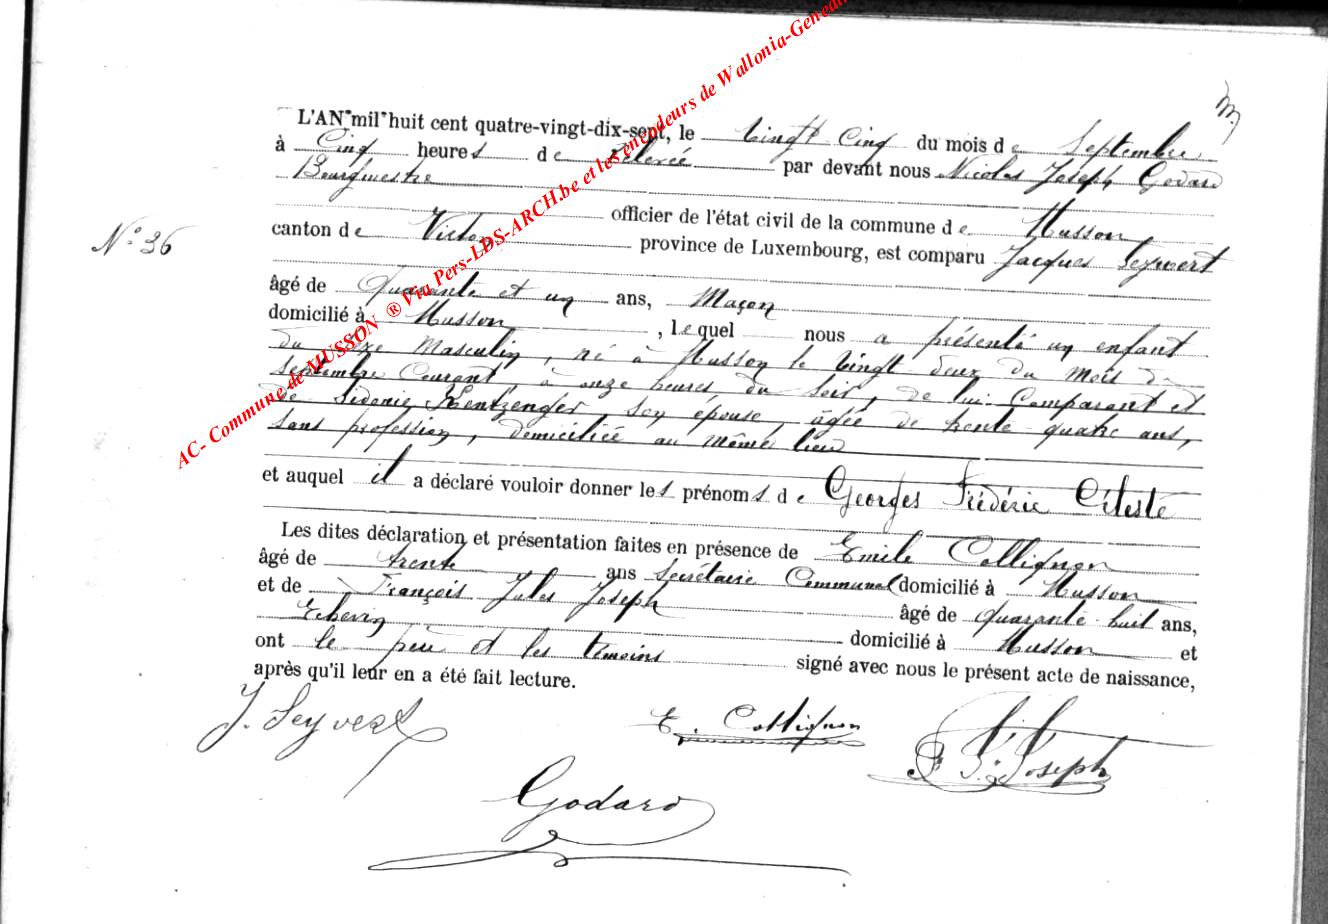 AC- Commune de MUSSON ® Via Pers-LDS-ARCH.be et les encodeurs de Wallonia-Geneal
L'AN mil huit cent quatre-vingt-dix-sept, le Vingt Cinq du mois de Septembre
à Cinq heures de relevée par devant nous Nicolas Joseph Godard
Bourgmestre
officier de l'état civil de la commune de Musson
N° 36
canton de Virton province de Luxembourg, est comparu Jacques Seywert
âgé de Quarante et un ans, Maçon
domicilié à Musson, lequel nous a présenté un enfant
du sexe Masculin, né à Musson le Vingt deux du mois de
Septembre Courant, à onze heures du Soir, de lui Comparant et
de Sidonie Kentzenger, son épouse, âgée de trente quatre ans,
Sans profession, domiciliée au même lieu
et auquel il a déclaré vouloir donner les prénoms de Georges Frédéric Céleste
Les dites déclaration et présentation faites en présence de Emile Collignon
âgé de trente ans Secrétaire Communal domicilié à Musson
et de François Jules Joseph âgé de quarante huit ans,
Echevin domicilié à Musson et
ont le père et les témoins signé avec nous le présent acte de naissance,
après qu'il leur en a été fait lecture.
J. Seyvert E. Collignon F. J. Joseph
Godard